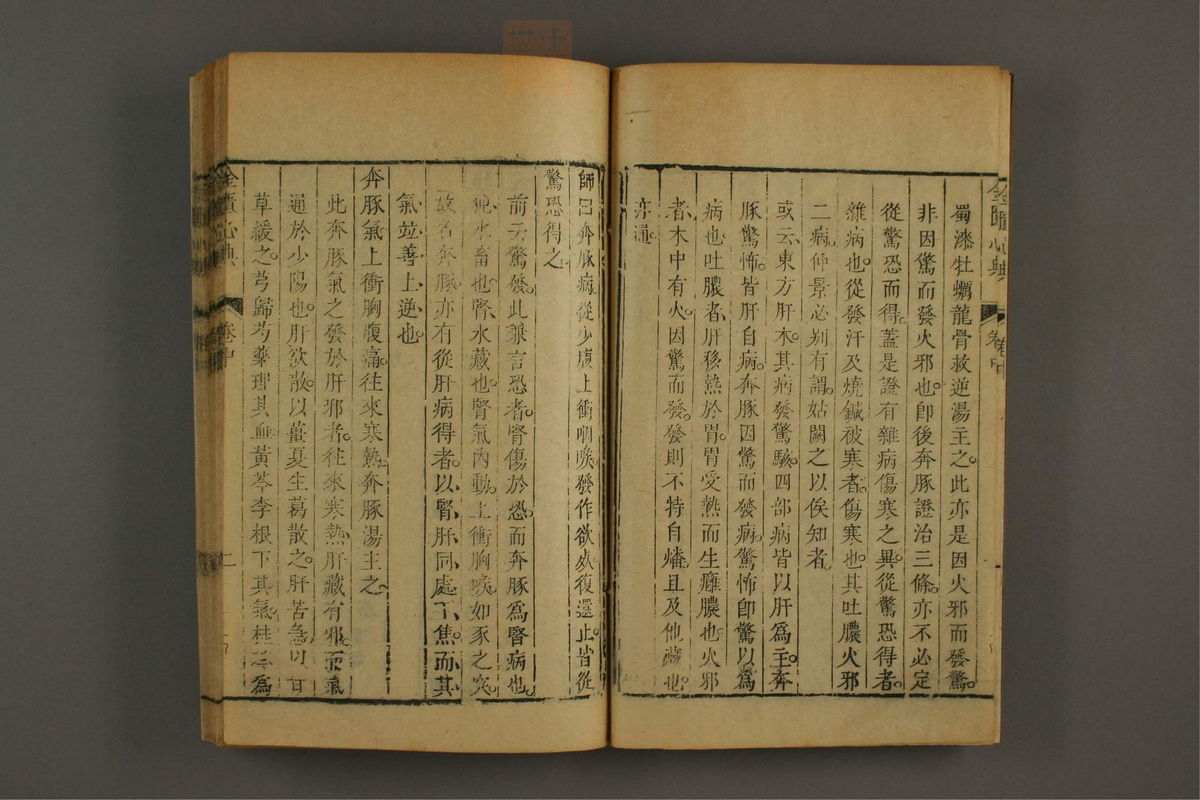 蜀漆牡蠣龍骨救逆湯主之此亦是因火邪而發驚
非因驚而發火邪也卽後奔豚證治三條亦不必定
從驚恐而得蓋是證有雜病傷寒之異從驚恐得者
雜病也從發汗及燒鍼被寒者傷寒也其吐膿火邪
二病仲景必別有謂姑闕之以俟知者
或云東方肝木其病發驚駭四部病皆以肝爲主奔
豚驚怖皆肝自病奔豚因驚而發病驚怖卽驚以爲
病也吐膿者肝移熱於胃胃受熱而生癰膿也火邪
者木中有火因驚而發發則不特自燔且及他藏也
亦通
金匱心典 卷中
師曰奔豚病從少腹上衝咽喉發作欲死復還止皆從
驚恐得之
前云驚發此兼言恐者腎傷於恐而奔豚爲腎病也
豚水畜也腎水藏也腎氣內動上衝胸喉如豕之突
故名奔豚亦有從肝病得者以腎肝同處下焦而其
氣並善上逆也
奔豚氣上衝胸腹痛往來寒熱奔豚湯主之
此奔豚氣之發於肝邪者往來寒熱肝藏有邪而氣
通於少陽也肝欲散以薑夏生葛散之肝苦急以甘
草緩之芎歸芍藥理其血黃芩李根下其氣桂苓爲
金匱心典 卷中 二